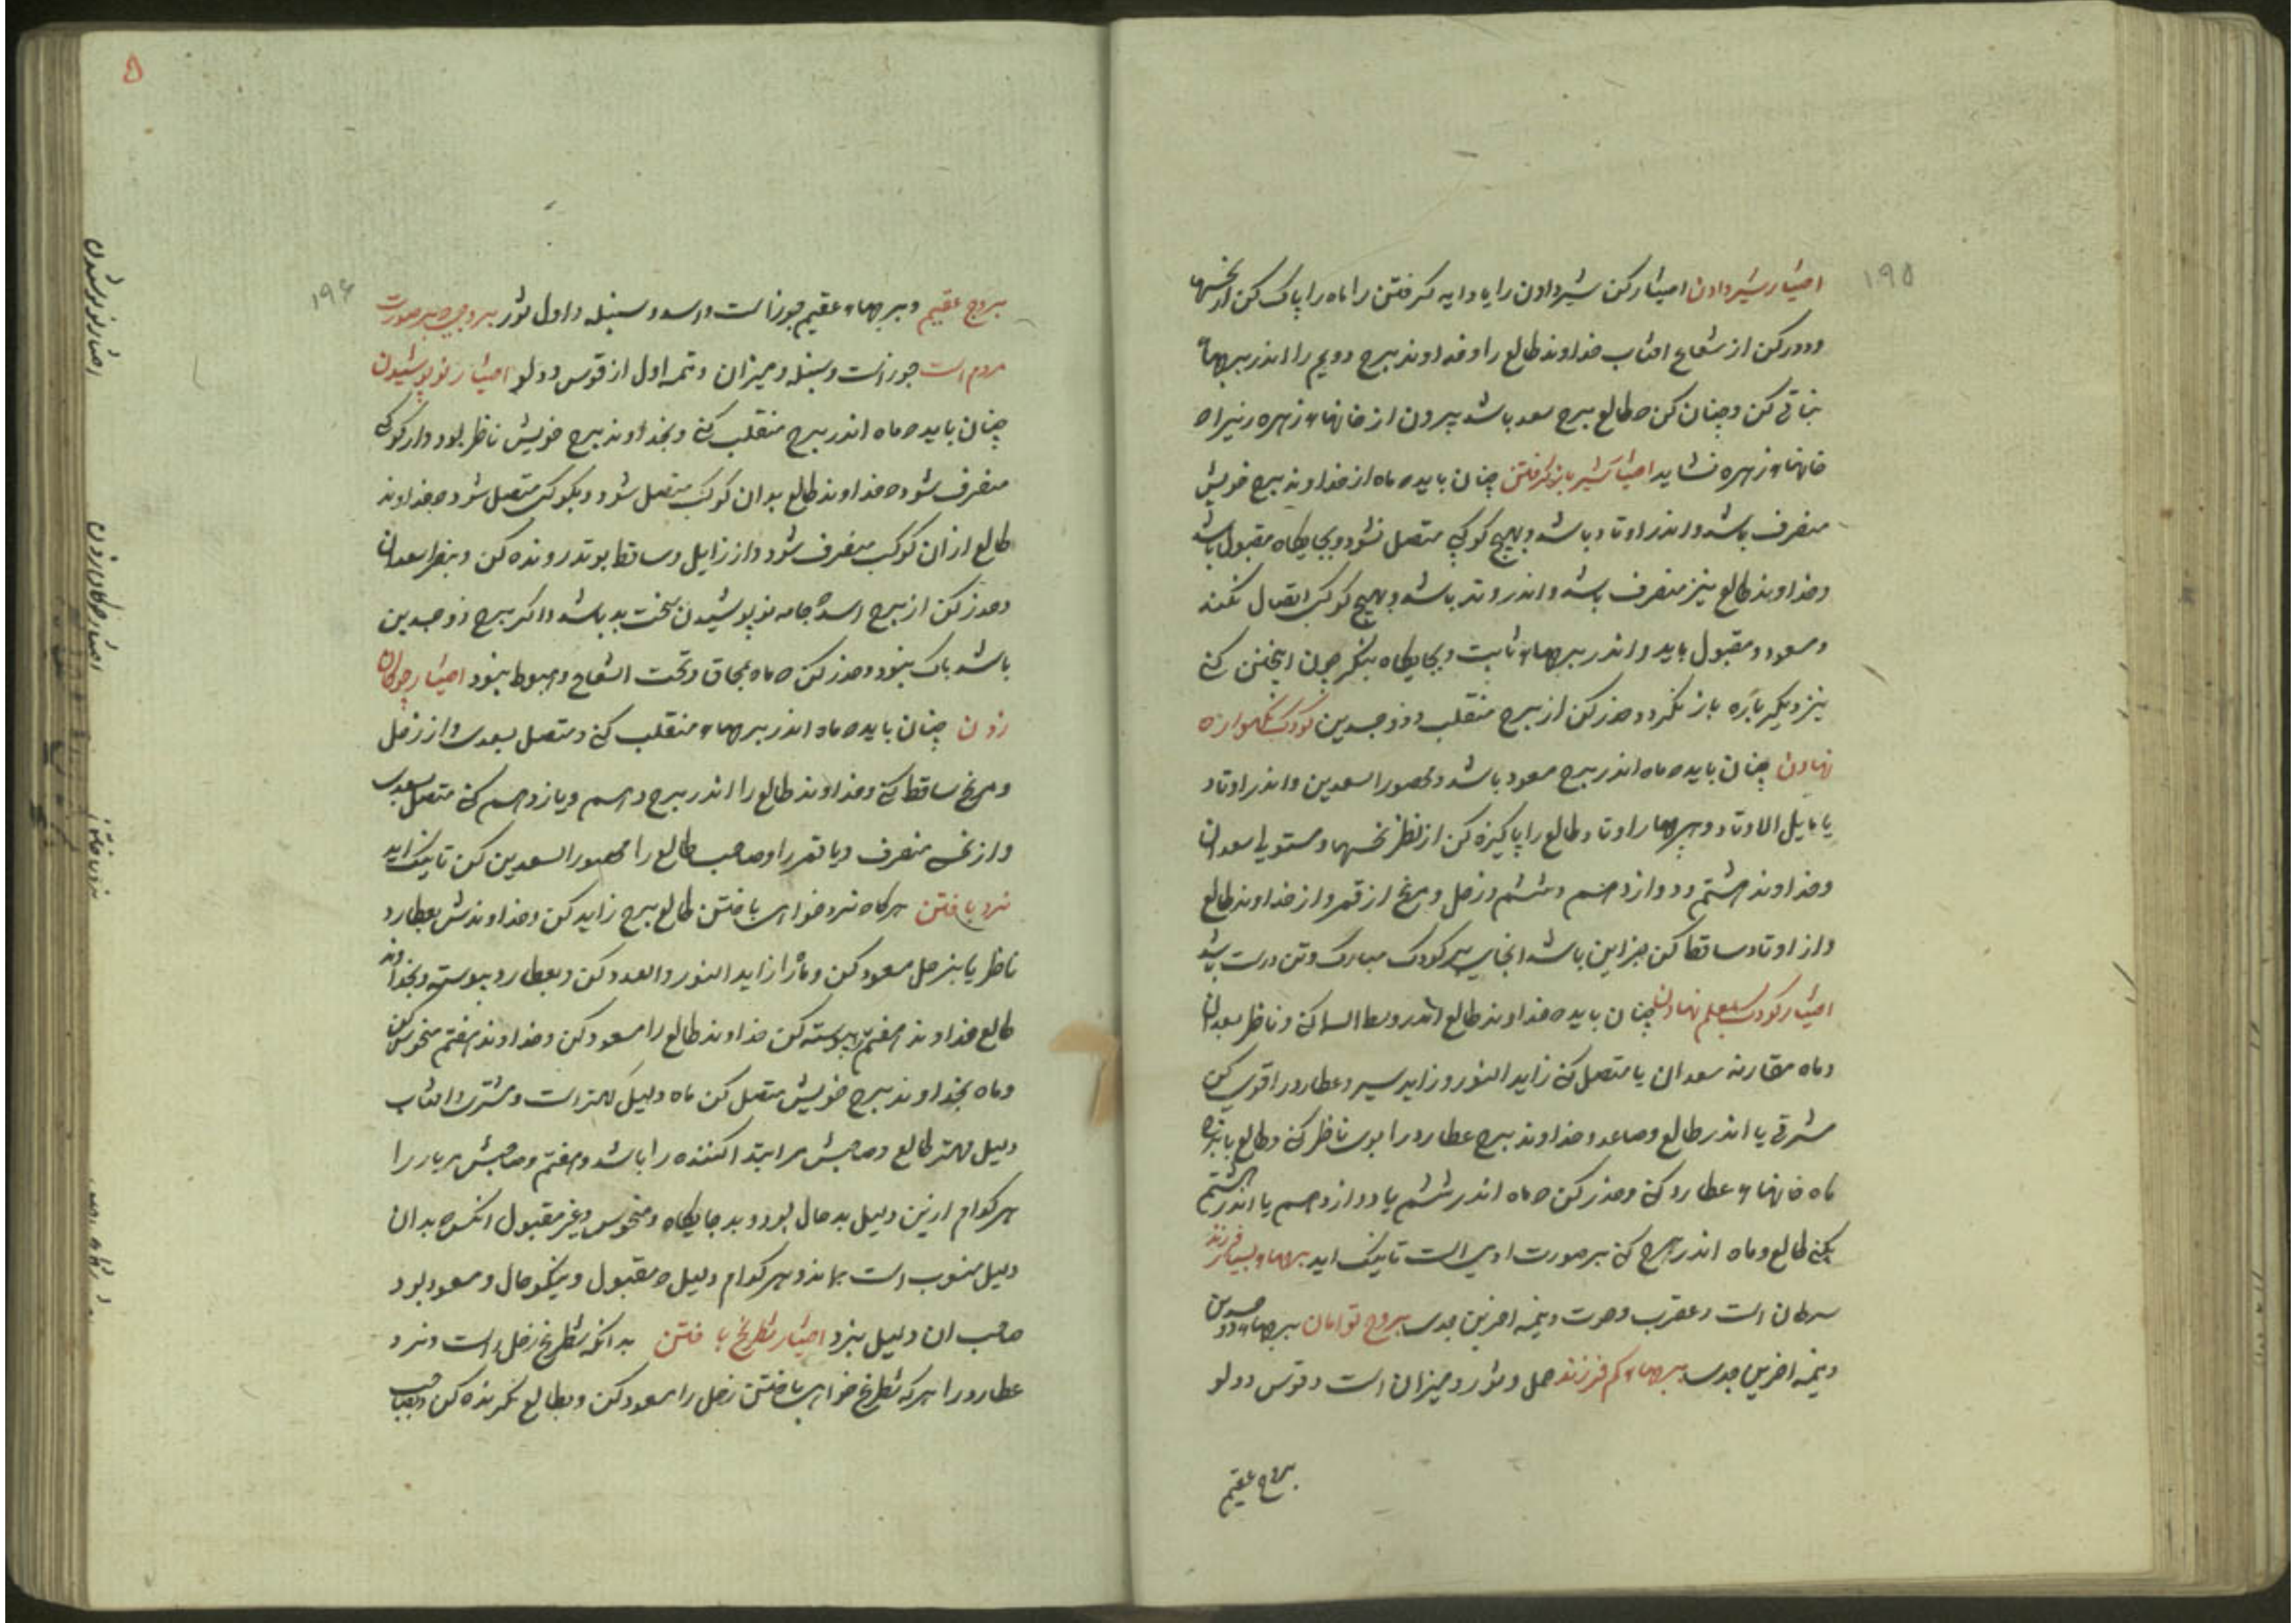 ۱۹۵
اختیار شیر دادن اختیار کن شیر دادن را یا دایه گرفتن را ماه را پاک کن از نحسها
و دور کن از شعاع افتاب خداوند طالع را و خداوند برج دویم را اندر برجهاء
نباتی کن و چنان کن که طالع برج سعد باشد بیرون از خانهاء زهره زیرا که
خانهاء زهره نشاید اختیار شیر باز گرفتن چنان باید که ماه از خداوند برج خویش
منصرف باشد و اندر اوتاد باشد و بهیچ کوکبی متصل نشود و بجایگاه مقبول باشد
و خداوند طالع نیز منصرف باشد و اندر وتد باشد و بهیچ کوکب اتصال نکند
و مسعود و مقبول باید و اندر برجهاء ثابت و بجایگاه نیک چون اینچنین کنی
نیز دیگر باره باز نگردد و حذر کن از برج منقلب و ذوجسدین کودک بگهواره
نهادن چنان باید که ماه اندر برج مسعود باشد و محصور السعدین و اندر اوتاد
یا مایل الاوتاد و هر چهار اوتاد و طالع را پاکیزه کن از نظر نحسها و مستولی سعدان
و خداوند هشتم و دوازدهم و ششم و زحل و مریخ از قمر و از خداوند طالع
و از اوتاد ساقط کن جز این باشد انجای هر کودک مبارک و تن درست باشد
اختیار کودک بمعلم نهادن چنان باید که خداوند طالع اندر وسط السما کنی و ناظر بسعدان
و ماه مقارنه سعدان یا متصل کنی زاید النور و زاید سیر و عطارد را قوی کن
مشرقی یا اندر طالع و صاعد و خداوند برج عطارد را بوی ناظر کنی و طالع یا برج
ماه خانهاء عطارد کنی و حذر کن که ماه اندر ششم یا دوازدهم یا اندر هشتم
بکنی طالع و ماه اندر برج کنی بر صورت ادمی است تا نیک اید برجهاء بسیار فرزند
سرطان است و عقرب و حوت و نیمه اخرین جدی بروج توامان برجهاء ذو جسدین
و نیمه اخرین جدی برجهاء کم فرزند حمل و ثور و میزان است و قوس و دلو
بروج عقیم
۱۹۶
بروج عقیم و برجهاء عقیم جوزا است و اسد و سنبله و اول ثور بروجی که بر صورت
مردم است جوزا است و سنبله و میزان و نیمه اول از قوس و دلو اختیار نو پوشیدن
چنان باید که ماه اندر برج منقلب کنی و بخداوند برج خویش ناظر بود و از کوکبی
منصرف شود که خداوند طالع بدان کوکب متصل شود و بکوکبی متصل شود که خداوند
طالع از ان کوکب منصرف شود و از زایل و ساقط بوتد رونده کن و بنظر سعدان
و حذر کن از برج اسد که جامه نو پوشیدن سخت بد باشد و اگر برج ذوجسدین
باشد باک نبود و حذر کن که ماه بمحاق و تحت الشعاع و هبوط نبود اختیار چوگان
زدن چنان باید که ماه اندر برجهاء منقلب کنی و متصل بسعدی و از زحل
و مریخ ساقط کنی و خداوند طالع را اندر برج دهم و یازدهم کنی متصل بسعدی
و از نحس منصرف و یا قمر را و صاحب طالع را محصور السعدین کن تا نیک اید
نرد باختن هر گاه نرد خواهی باختن طالع برج زاید کن و خداوندش بعطارد
ناظر یا بزحل مسعود کن و ماه را زاید النور و العدد کن و بعطارد پیوسته و بخداوند
طالع خداوند هفتم پیوسته کن خداوند طالع را مسعود کن و خداوند هفتم منحوس کن
و ماه بخداوند برج خویش متصل کن ماه دلیل کهتر است و مشتری و افتاب
دلیل مهتر طالع و صاحبش مر ابتدا کننده را باشد و هفتم و صاحبش مر یار را
هر کدام ازین دلیل بد حال بود و بد جایگاه و منحوس و غیر مقبول انکس که بدان
دلیل منسوب است بماند و هر کدام دلیل که مقبول و نیکو حال و مسعود بود
صاحب ان دلیل ببرد اختیار شطرنج باختن بدانکه شطرنج زحل راست و نرد
عطارد را هر که شطرنج خواهی باختن زحل را مسعود کن و بطالع نگرنده کن و بصاحب
اختیار نو پوشیدن
اختیار چوگان زدن
نرد باختن